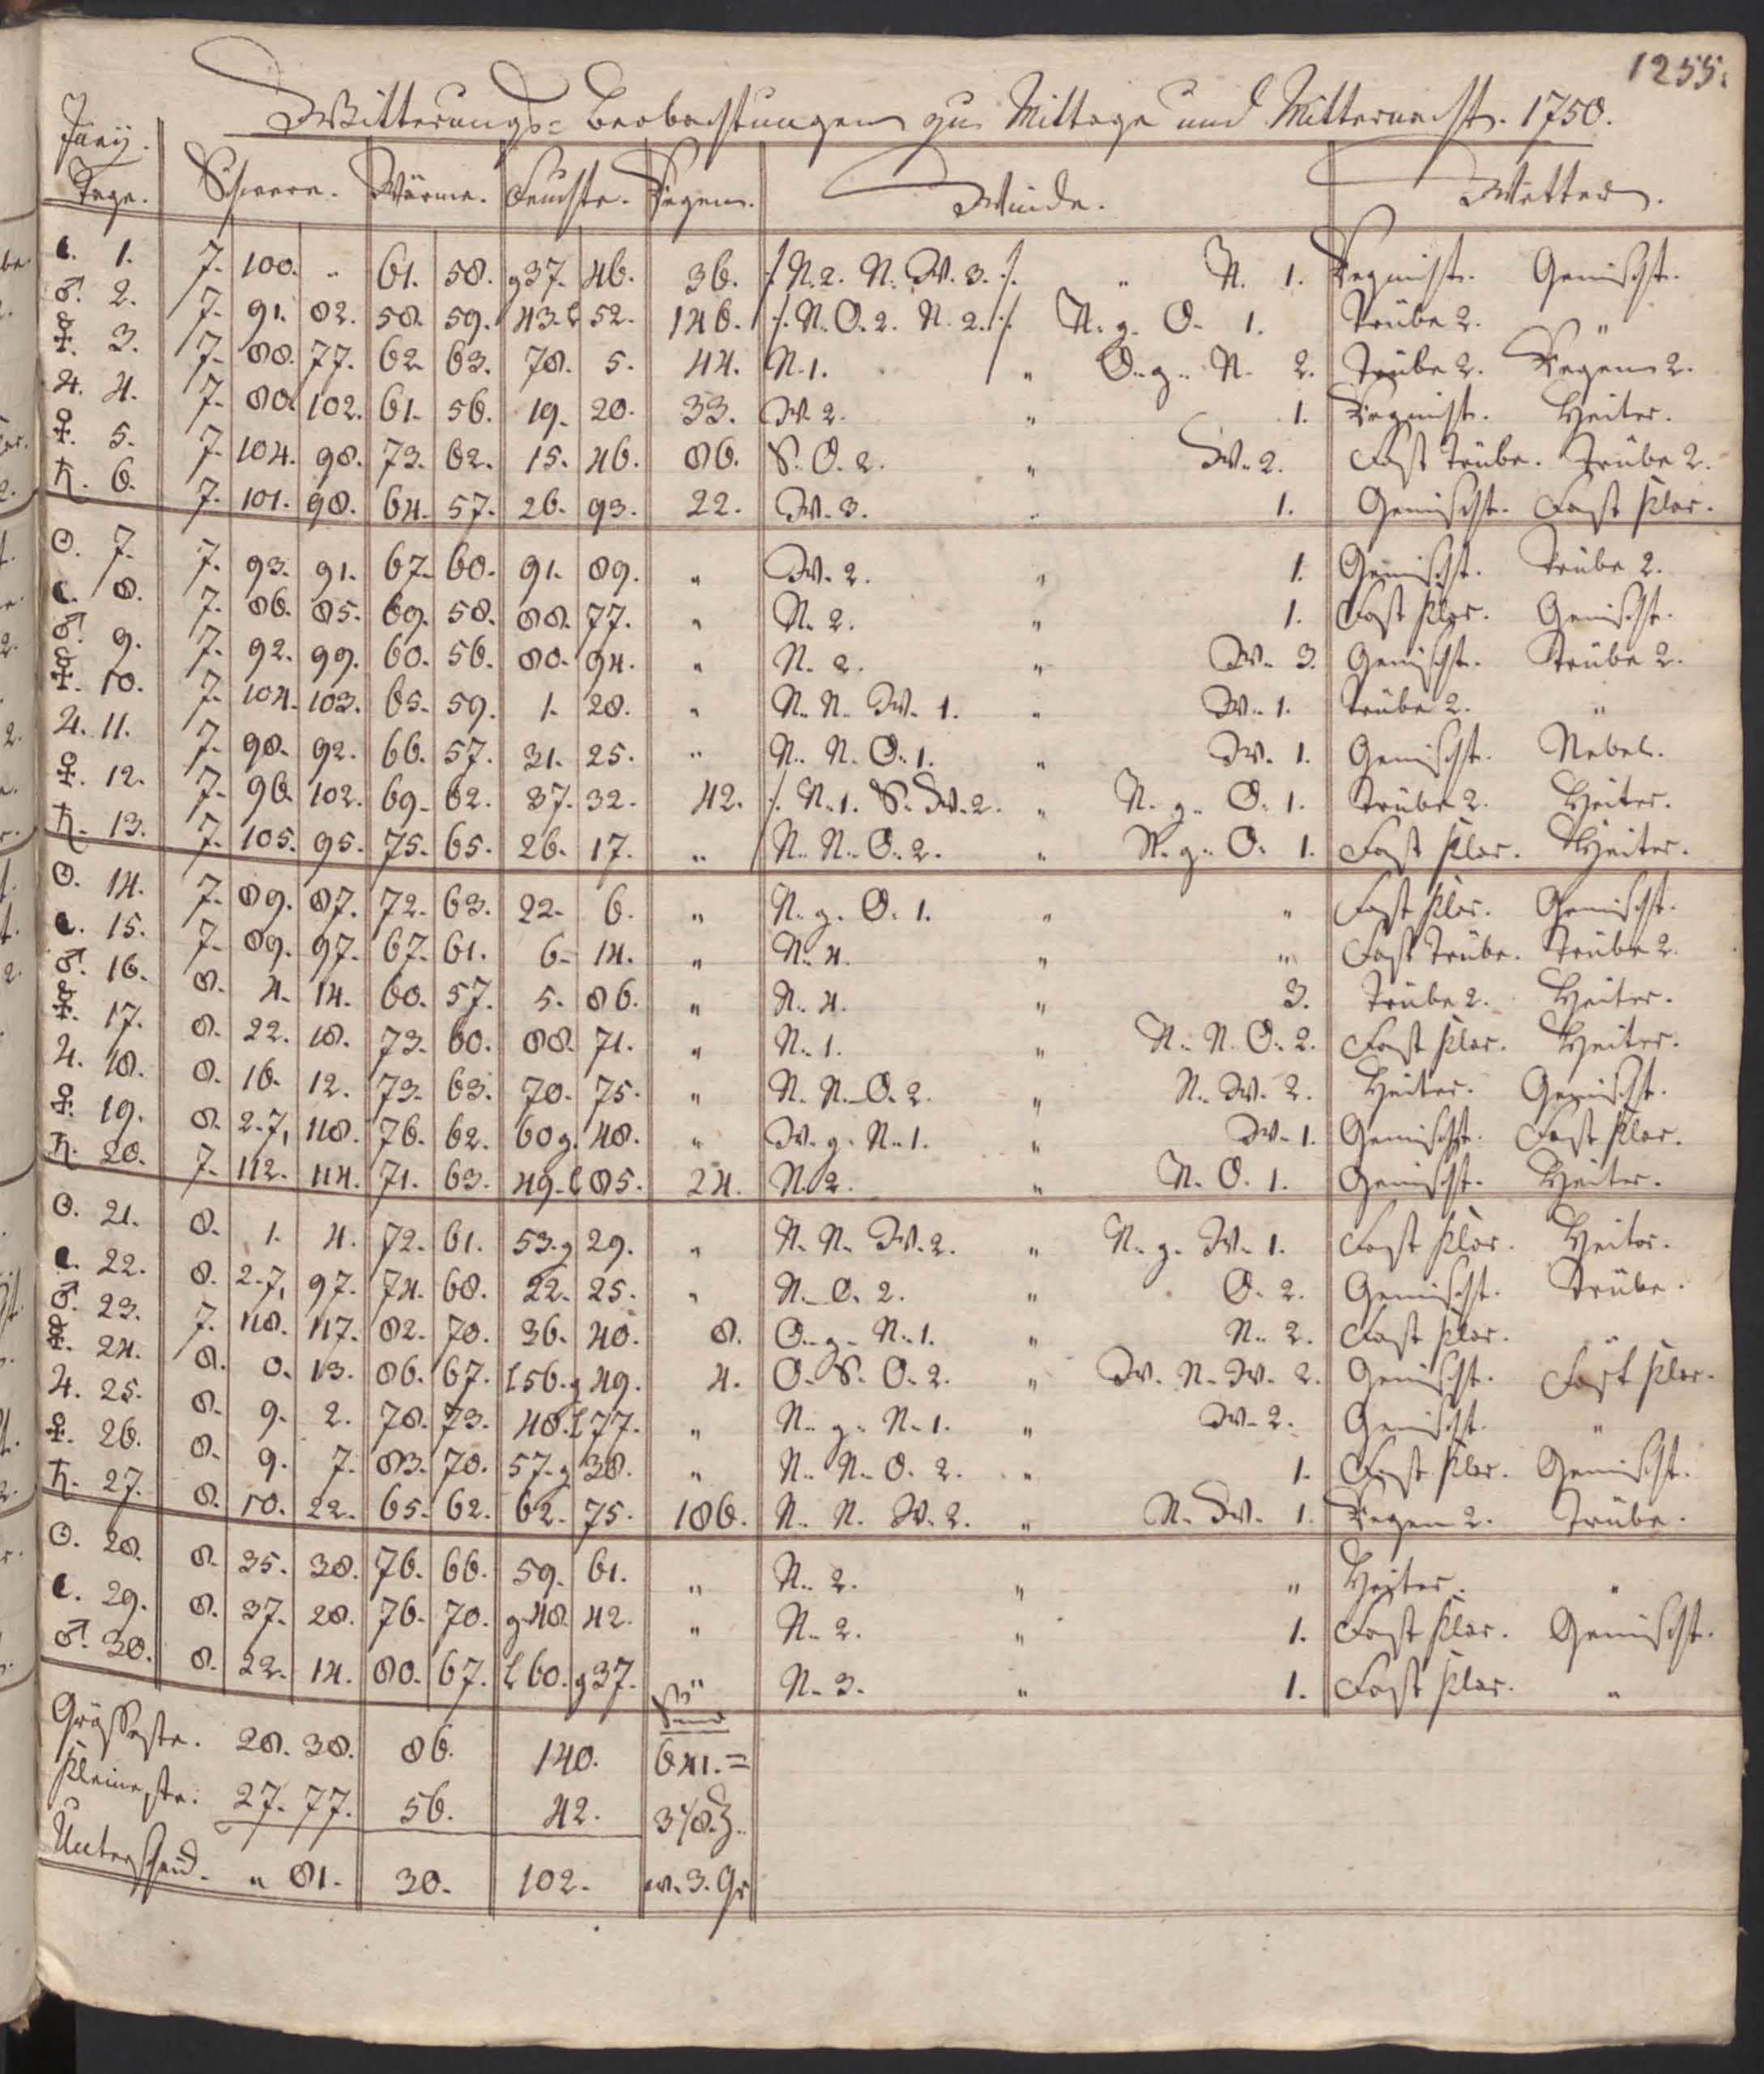 1255.
Witterungs-Beobachtungen zu Mittage und Mitternacht. 1750.
Junij.
Tage. Schwere. Wärme. Feuchte. Regen. Winde. Wetter.
☾. 1. 7. 100. „ 61. 58. g37. 46. 36. ∕. N. 2. N. W. 3. ∕. „ N. 1. Regnicht. Gemischt.
♂. 2. 7. 91. 82. 58. 59. 43. l 52. 146. ∕. N. O. 2. N. 2. ∕. N. g. O. 1. Trübe 2. „
☿. 3. 7. 88. 77. 62. 63. 78. 5. 44. N. 1. „ O. g. N. 2. Trübe 2. Regen 2.
♃. 4. 7. 80. 102. 61. 56. 19. 20. 33. W. 2. „ 1. Regnicht. Heiter.
♀. 5. 7. 104. 98. 73. 62. 15. 46. 86. S. O. 2. „ W. 2. Fast trübe. Trübe 2.
♄. 6. 7. 101. 98. 64. 57. 26. 93. 22. W. 3. „ 1. Gemischt. Fast klar.
☉. 7. 7. 93. 91. 67. 60. 91. 89. „ W. 2. „ 1. Gemischt. Trübe 2.
☾. 8. 7. 86. 85. 69. 58. 88. 77. „ N. 2. „ 1. Fast klar. Gemischt.
♂. 9. 7. 92. 99. 60. 56. 80. 94. „ N. 2. „ W. 3. Gemischt. Trübe 2.
☿. 10. 7. 104. 103. 65. 59. 1. 28. „ N. N. W. 1. „ W. 1. Trübe 2. „
♃. 11. 7. 98. 92. 66. 57. 31. 25. „ N. N. O. 1. „ W. 1. Gemischt. Nebel.
♀. 12. 7. 96. 102. 69. 62. 37. 32. 42. ∕. N. 1. S. W. 2. „ N. g. O. 1. Trübe 2. Heiter.
♄. 13. 7. 105. 95. 75. 65. 26. 17. „ N. N. O. 2. „ N. g. O. 1. Fast klar. Heiter.
☉. 14. 7. 89. 87. 72. 63. 22. 6. „ N. g. O. 1. „ „ Fast klar. Gemischt.
☾. 15. 7. 89. 97. 67. 61. 6. 14. „ N. 4. „ „ Fast trübe. Trübe 2.
♂. 16. 8. 4. 14. 60. 57. 5. 86. „ N. 4. „ 3. Trübe 2. Heiter.
☿. 17. 8. 22. 18. 73. 60. 88. 71. „ N. 1. „ N. N. O. 2. Fast klar. Heiter.
♃. 18. 8. 16. 12. 73. 63. 70. 75. „ N. N. O. 2. „ N. W. 2. Heiter. Gemischt.
♀. 19. 8. 2. 7, 118. 76. 62. 60 g. 48. „ W. g. N. 1. „ W. 1. Gemischt. Fast klar.
♄. 20. 7. 112. 114. 71. 63. 49. l 85. 24. N. 2. „ N. O. 1. Gemischt. Heiter.
☉. 21. 8. 1. 4. 72. 61. 53. g 29. „ N. N. W. 2. „ N. g. W. 1. Fast klar. Heiter.
☾. 22. 8. 2. 7, 97. 74. 68. 22. 25. „ N. O. 2. „ O. 2. Gemischt. Trübe.
♂. 23. 7. 118. 117. 82. 70. 36. 40. 8. O. g. N. 1. „ N. 2. Fast klar. „
☿. 24. 8. 0. 13. 86. 67. l 56. g 49. 4. O. S. O. 2. „ W. N. W. 2. Gemischt. Fast klar.
♃. 25. 8. 9. 2. 78. 73. 48. l 77. „ N. g. N. 1. „ W. 2. Gemischt. „
♀. 26. 8. 9. 7. 83. 70. 57. g 38. „ N. N. O. 2. „ 1. Fast klar. Gemischt.
♄. 27. 8. 10. 22. 65. 62. 62. 75. 186. N. N. W. 2. „ N. W. 1. Regen 2. Trübe.
☉. 28. 8. 35. 38. 76. 66. 59. 61. „ N. 2. „ „ Heiter. „
☾. 29. 8. 37. 28. 76. 70. g 48. 42. „ N. 2. „ 1. Fast klar. Gemischt.
♂. 30. 8. 22. 14. 80. 67. l 60. g 37. „ N. 3. „ 1. Fast klar. „
Grösseste. 28. 38. 86. 140. 641. =
Kleineste. 27. 77. 56. 42. 3 7/8. Z.
Unterscheid. „ 81. 30. 102. w. 3. Gr